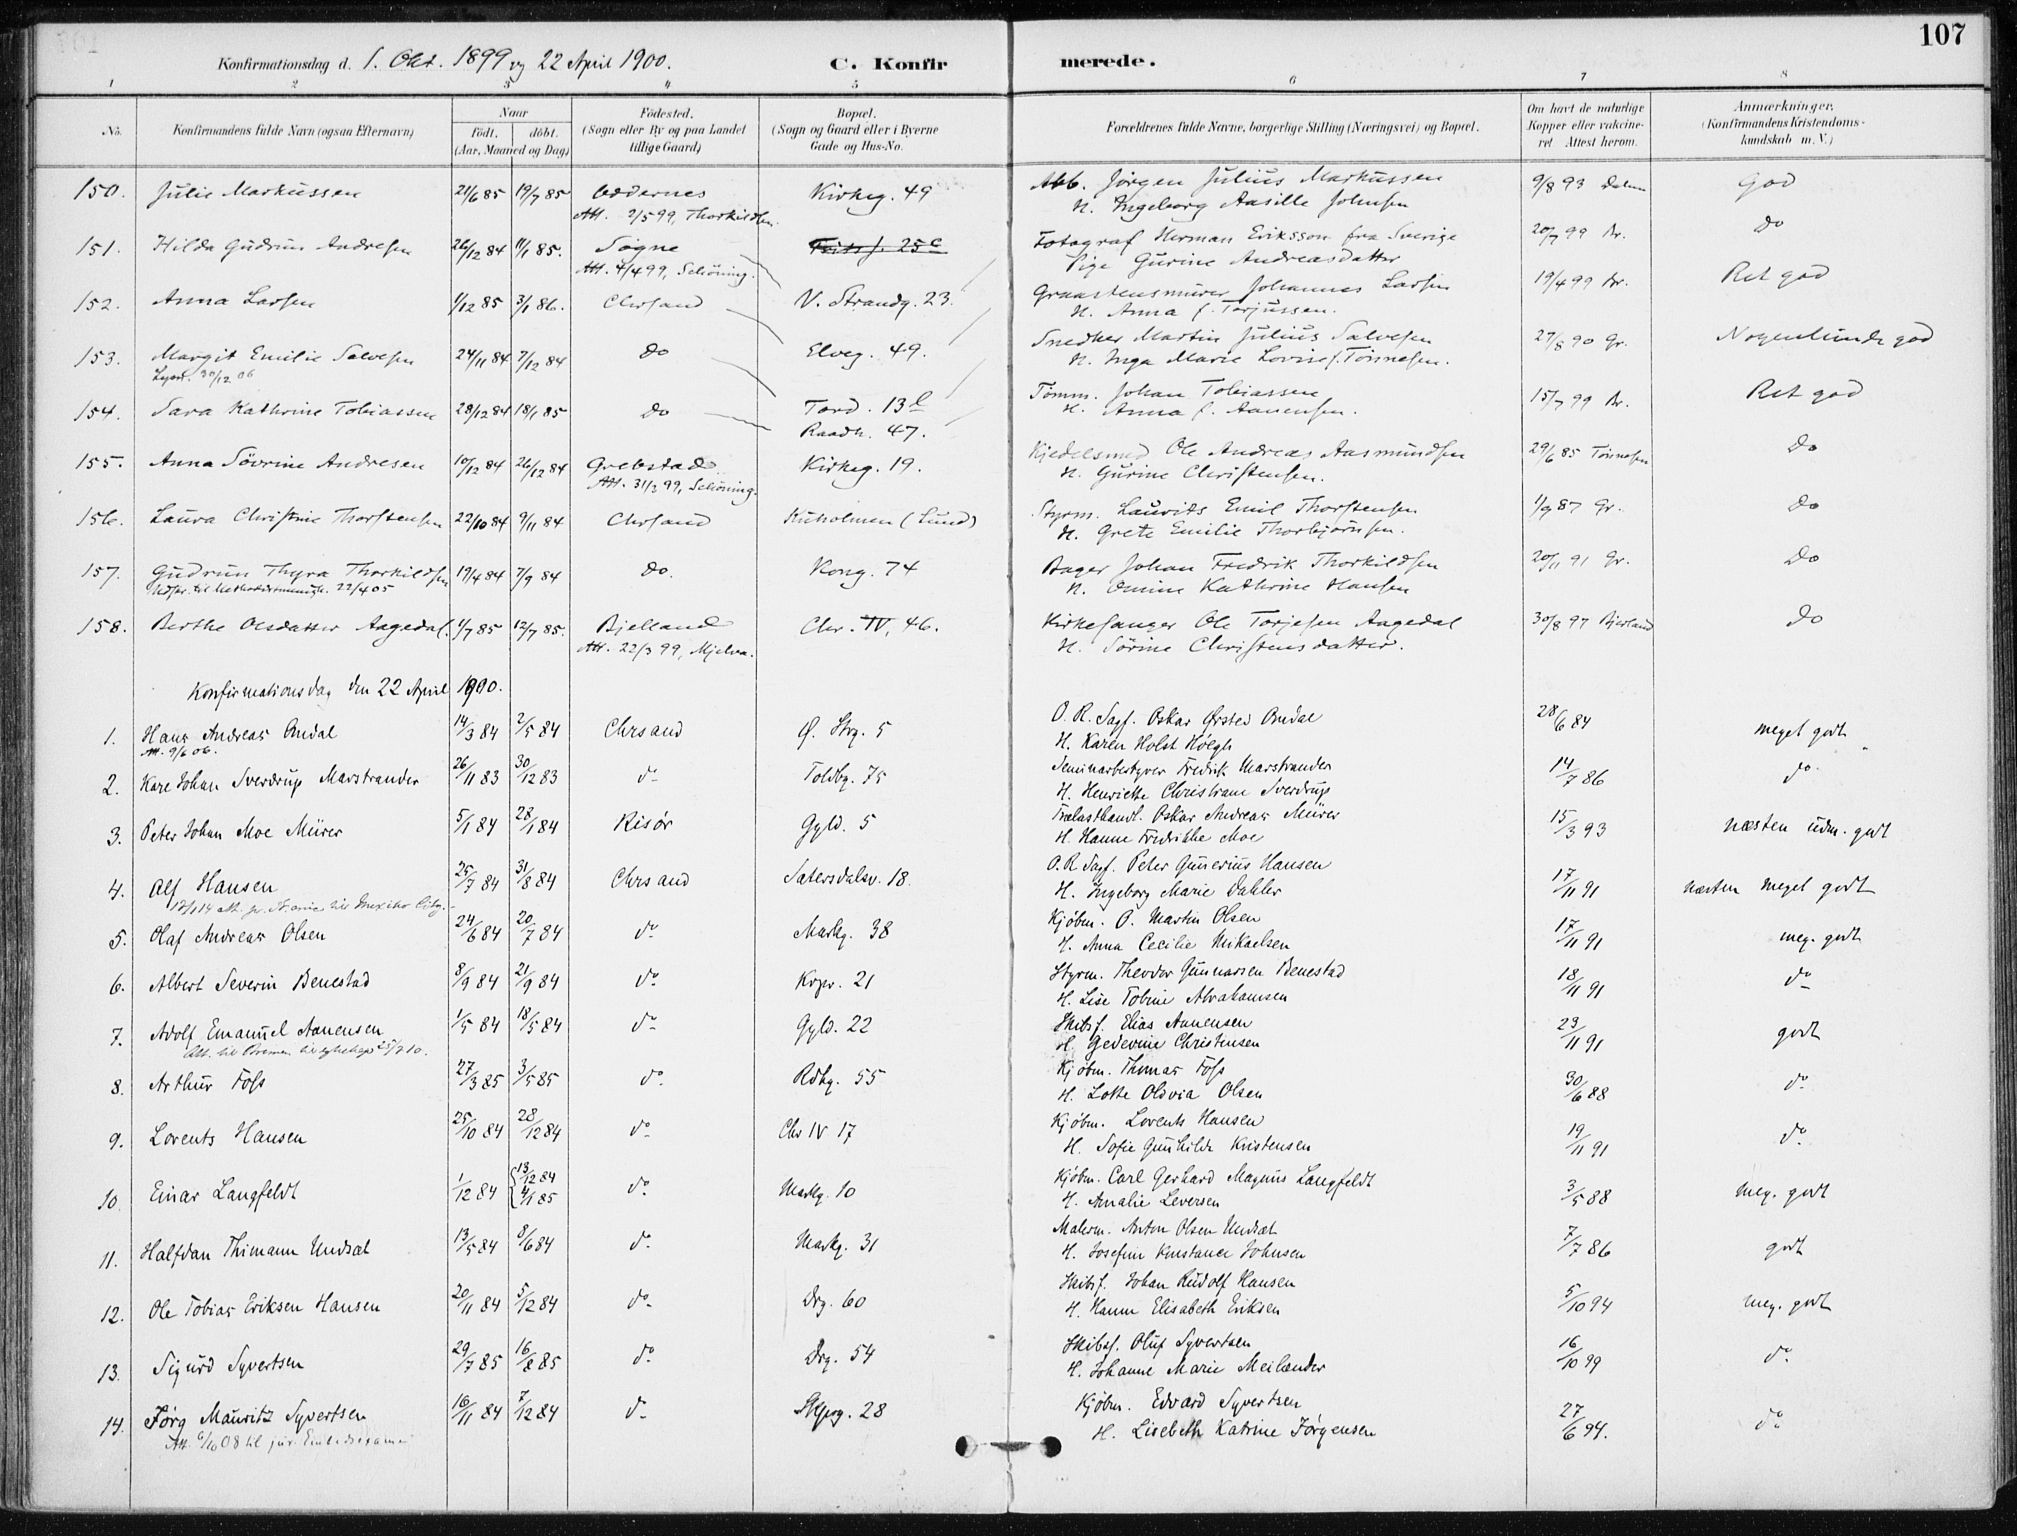 107
Konfirmationsdag d. 1. Okt. 1899 og 22 April 1900.
C. Konfirmerede.
1 2 3 4 5 6 7 8
No.
Konfirmandens fulde Navn (ogsaa Efternavn)
Naar
födt. döbt.
(Aar, Maaned og Dag)
Födested.
(Sogn eller By og paa Landet
tillige Gaard)
Bopæl.
(Sogn og Gaard eller i Byerne
Gade og Hus-No.
Forældrenes fulde Navne, borgerlige Stilling (Næringsvei) og Bopæl.
Om havt de naturlige
Kopper eller vakcine-
ret. Attest herom.
Anmærkninger,
(Konfirmandens Kristendoms-
kundskab m. V.)
150. Julie Markussen 21/6 85 19/7 85 Oddernes Kirkeg. 49 Arb. Jörgen Julius Markussen 9/8 93 God
Att. 2/5 99, Thorkildsen. H. Ingeborg Aasille Johnsen
151. Hilda Gudrun Andresen 26/12 84 11/1 85. Sögne 25c Fotograf Herman Eriksson fra Sverige 20/7 99 Br. do
Att. 4/4 99, Schöning. Pige Gurine Andreasdatter
152. Anna Larsen 1/12 85 3/1 86. Chrsand V. Strandg. 23. Graastensmurer Johannes Larsen 19/4 99 Br. Ret god
H. Anna f. Torjussen.
153. Margit Emilie Salvesen 24/11 84 7/12 84 do Elveg. 49. Snedker Martin Julius Salvesen 27/8 90 Gr. Nogenlunde god
30/12 06 H. Inga Marie Lovise f. Tönnesen.
154. Sara Kathrine Tobiassen 28/12 84 18/1 85 do Tord. 13 Tömm. Johan Tobiassen 15/7 99 Br. Ret god
Raadh. 47. H. Anna f. Aanensen.
155. Anna Sövrine Andresen 10/12 84 26/12 84 Grebstad Kirkeg. 19. Kjedelsmed Ole Andreas Aasmundsen 29/6 85 Tönnesen do
Att. 31/3 99, Schöning. H. Gurine Christensen.
156. Laura Christine Thorstensen 22/10 84 9/11 84 Chrsand Kuholmen (Lund) Styrm. Laurits Emil Thorstensen 1/9 87 Gr. do
H. Grete Emilie Thorbjörnsen.
157. Gudrun Thyra Thorkildsen 19/4 84 7/9 84 do. Kong. 74 Bager Johan Fredrik Thorkildsen 20/11 91 Gr. do
Udskr. til Methodistmenigh. 22/4 05 H. Omine Kathrine Hansen
158. Berthe Olsdatter Aagedal. 1/7 85 12/7 85. Bjelland Chr. IV, 46. Kirkesanger Ole Torjesen Aagedal 30/8 97 Bjelland do
Att. 22/3 99, Mjelva. H. Sörine Christensdatter.
Konfirmationsdag den 22 April 1900.
1. Hans Andreas Omdal 14/3 84 2/5 84 Chrsand Ø. Strg. 5 O. R. Sagf. Oskar Ørsted Omdal 28/6 84 meget godt
Att. 9/6 06. H. Karen Holst Høegh
2. Kare Johan Sverdrup Marstrander 26/11 83 30/12 83 do Toldbg. 75 Seminarbestyrer Fredrik Marstrander 14/7 86 do
H. Henriette Christiane Sverdrup
3. Peter Johan Moe Mürer 5/1 84 28/1 84 Risör Gyld. 5 Trælasthandl. Oskar Andreas Mürer 15/3 93 næsten udm. godt
H. Hanne Fredrikke Moe
4. Alf Hansen 25/7 84 31/8 84 Chrsand Sætersdalsv. 18. O. R. Sagf. Peter Gunerius Hansen 17/11 91 næsten meget godt
H. Ingeborg Marie Dahler
5. Olaf Andreas Olsen 24/6 84 20/7 84 do Markg. 38 Kjøbm. O. Martin Olsen 17/11 91 meg. godt
H. Anna Cecilie Mikaelsen
6. Albert Severin Benestad 8/9 84 21/9 84 do Krpr. 21 Styrm. Theodor Gunnarsen Benestad 18/11 91 do
H. Lise Tobine Abrahamsen
7. Adolf Emanuel Aanensen 1/5 84 18/5 84 do Gyld. 22 Skibsf. Elias Aanensen 23/11 91 godt
H. Gedevine Christensen
8. Arthur Foss 27/3 85 3/5 85 do Rdhg. 55 Kjøbm. Thomas Foss 30/6 88 do
H. Lotte Oldvia Olsen
9. Lorents Hansen 25/10 84 28/12 84 do Chr IV 17 Kjøbm. Lorents Hansen 19/11 91 do
H. Sofie Gunhilde Kristensen
10. Einar Langfeldt 1/12 84 13/12 84 4/1 85 do Markg. 10 Kjøbm. Carl Gerhard Magnus Langfeldt 3/5 88 meg. godt
H. Amalie Leversen
11. Halfdan Thimann Undsæt 13/5 84 8/6 84 do Markg. 31 Malerm. Anton Olsen Undsæt 7/7 86 godt
H. Josefine Konstance Johnsen
12. Ole Tobias Eriksen Hansen 20/11 84 5/12 84 do Drg. 60 Skibsf. Johan Rudolf Hansen 5/10 94 meg. godt
H. Hanne Elisabeth Eriksen
13. Sigurd Syvertsen 29/7 85 16/8 85 do Drg. 54 Skibsf. Oluf Syvertsen 16/10 99 do
H. Johanne Marie Meilænder
14. Jörg Mauritz Syvertsen 16/11 84 7/12 84 do Skprg. 28 Kjøbm. Edvard Syvertsen 27/6 94. do
Att. 6/10 08 til jur. Embedsexamen H. Lisebeth Katrine Jörgensen